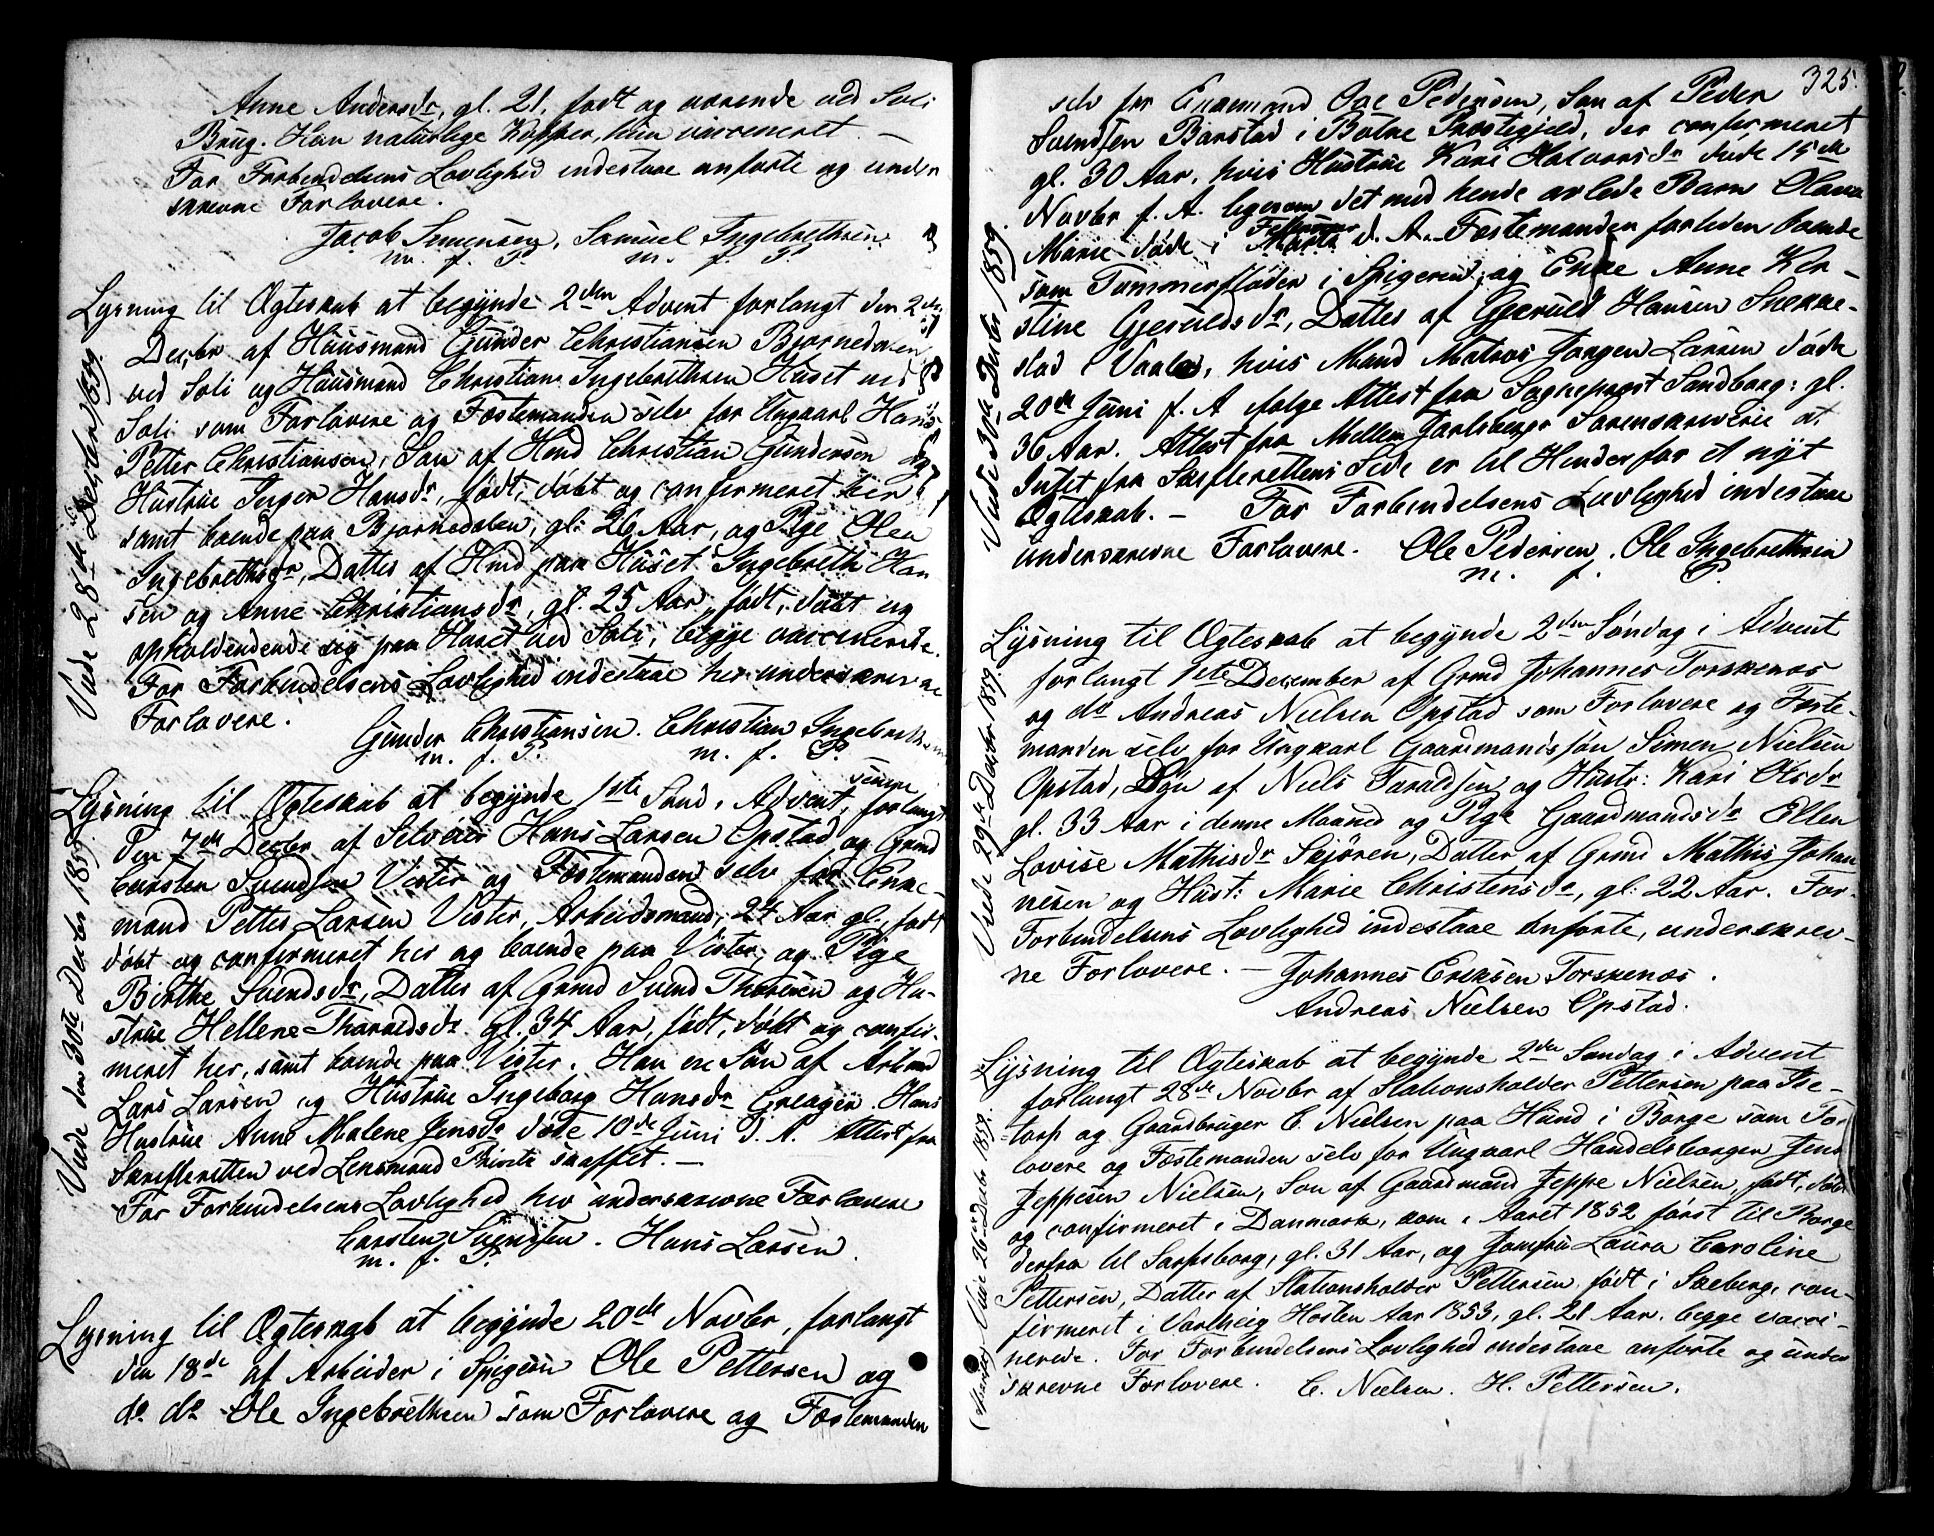 Anne Andersdr, gl. 21, født og værende ved Soli
Brug. Han naturlige Kopper, hun vaccineret. —
For Forbindelsens Lovlighed indestaae anførte og under
skrevne Forlovere.
Jacob Simensen, Samuel Ingebrethsen
m. f. P. m. f. P.
Lysning til Ægteskab at begynde 2den Advent forlangt den 2den
Decbr af Huusmand Gunder Christiansen Bjørnedalen
ved Soli og Huusmand Christian Ingebrethsen Huset ved
Soli som Forlovere og Fæstemanden selv for Ungkarl Hans
Petter Christiansen, Søn af Hmd Christian Gundersen og
Hustrue Inger Hansdr, født, døbt og confirmeret her
samt boende paa Bjørnedalen, gl: 26 Aar, og Pige Olea
Ingebrethsdr, Datter af Hmd paa Huset Ingebreth Han
sen og Anne Christiansdr, gl. 25 Aar, født, døbt og
opholdendende sig paa Huset ved Soli, begge vaccinerede.
For Forbindelsens Lovlighed indestaae her underskrevne
Forlovere.
Gunder Christiansen. Christian Ingebrethsen
m. f. P. m. f. P.
Viede 28de Decber 1859.
Lysning til Ægteskab at begynde 1ste Sønd. i Advent, forlangt
den 7de Decbr af Selveier Hans Larsen Opstad og Grmd
Carsten Svendsen Vister og Fæstemanden selv for Enke-
mand Petter Larsen Vister, Arbeidsmand, 24 Aar gl., født
døbt og confirmeret her og boende paa Vister, og Pige
Birthe Svendsdr, Datter af Grmd Svend Thoresen og Hu-
strue Hellene Tharaldsdr gl. 34 Aar, født, døbt og confir-
meret her, samt boende paa Vister. Han en Søn af Arbmd
Lars Larsen og Hustrue Ingeborg Hansdr Greager. Hans
Hustrue Anne Malene Jensdr døde 10de Juni d. A. Attest fra
Skifteretten ved Lensmand skaffet. —
For Forbindelsens Lovlighed her underskrevne Forlovere
Carsten Svendsen. Hans Larsen.
m. f. P.
Viede den 30te Decbr 1859.
Lysning til Ægteskab at begynde 20de Novbr, forlangt
den 18de af Arbeider i Spigeri Ole Pettersen og
do do Ole Ingebrethsen som Forlovere og Fæstemanden
325.
selv for Enkemand Ole Pedersen, Søn af Peder
Svendsen Barstad i Botne Præstegjeld, der confirmeret
gl. 30 Aar, hvis Hustrue Kari Halvorsdr døde 15de
Novbr f. A. ligesom det med hende avlede Barn Olava
Marie døde i Februar d. A. Fæstemanden forleden boende
som Tømmerfløder i Spigeren, og Enke Anne Ker-
stine Gjeruldsdr, Datter af Gjeruld Hansen Snekke-
stad i Vaale, hvis Mand Matros Jørgen Larsen døde
20de Juni f. A ifølge Attest fra Sognepræst Sandborg: gl.
36 Aar. Attest fra Mellem Jarlsberg Sorenskriverie at
Intet fra Skifterettens Side er til Hinder for et nyt
Ægteskab. — For Forbindelsens Lovlighed indestaae
underskrevne Forlovere. Ole Pedersen. Ole Ingebrethsen
m. f. P.
Viede 30te Decbr 1859.
Lysning til Ægteskab at begynde 2den Søndag i Advent
forlangt 1ste December af Grmd Johannes Torskenæs
og do Andreas Nielsen Opstad som Forlovere og Fæste-
manden selv for Ungkarl Gaardmandssøn Simen Nielsen
Opstad, Søn af Niels Taraldsen og Hustr: Kari Olsdr
gl. 33 Aar i denne Maaned og Pige Gaardmandsdr Ellen
Lovise Mathisdr Skjøren, Datter af Grmd Mathis Johan
nesen og Hust: Marie Christensdr, gl: 22 Aar. For-
Forbindelsens Lovlighed indestaae anførte, underskrev-
ne Forlovere. — Johannes Eriksen Torskenæs.
Andreas Nielsen Opstad.
Viede 29de Decbr 1859.
Lysning til Ægteskab at begynde 2den Søndag i Advent
forlangt 28de Novbr af Stationsholder Pettersen paa Ise-
torp og Gaardbruger C. Nielsen paa Hund i Borge som For
lovere og Fæstemanden selv for Ungkarl Handelsborger Jens
Jeppesen Nielsen, Søn af Gaardmand Jeppe Nielsen, født, døbt
og confirmeret i Danmark, kom i Aaret 1852 først til Borge
derfra til Sarpsborg, gl. 31 Aar, og Jomfru Laura Caroline
Pettersen, Datter af Stationsholder Pettersen, født i Skeberg, con-
firmeret i Varteig Høsten Aar 1853, gl. 21 Aar. begge vacci-
nerede. For Forbindelsens Lovlighed indestaae anførte og under
skrevne Forlovere. C. Nielsen. H. Pettersen.
Viede 26de Decbr 1859.